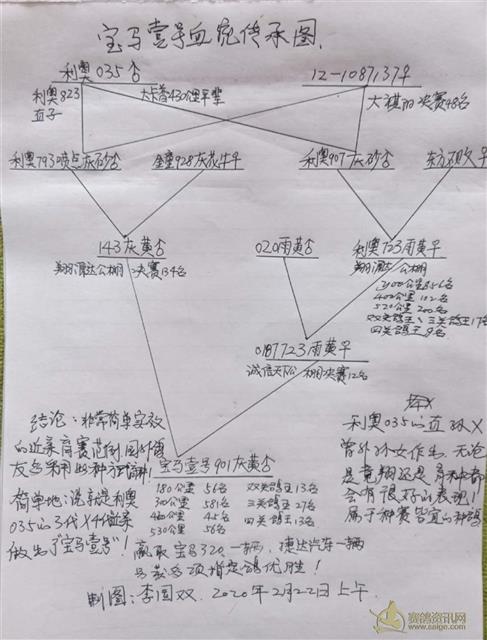 宝马壹号血统传承图
利奥035杏
12-1087137年
利奥823
直子
大棋网决赛48名
利奥793喷点灰砂杏
928灰花牛年
利奥907灰砂杏
东方不败年
143灰黄杏
020雨黄杏
利奥723雨黄年
翔渭达公棚决赛134名
翔渭达公棚
300公里856名
400公里112名
520公里200名
双关鸽王、三关鸽王17名
四关鸽王9名
0187723雨黄年
诚信天下公棚决赛12名
结论:非常简单实效
的近亲育赛范例国外鸽
友也采用此种方式育种!
简单地说就是利奥
035的3代X4代近亲
做出了"宝马壹号"!
宝马壹号901灰黄杏
180公里 56名 双关鸽王13名
300公里 581名 三关鸽王27名
460公里 45名 四关鸽王13名
530公里 56名
赢取宝马320一辆,捷达汽车一辆
另获多项指定鸽优胜!
利奥035的直孙X
曾外孙女作出,无论
是竞翔还是育种都
会有很好的表现!!
属于种赛皆宜的种鸽
制图:李国双.2020年2月22日上午.
赛鸽资讯网
www.saige.com